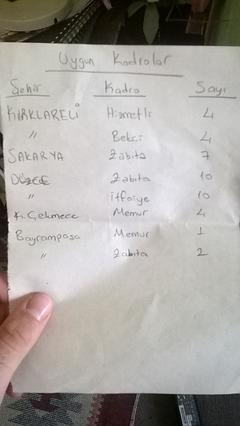 Uygun Kadrolar
Şehir Kadro Sayı
KIRKLARELİ Hizmetli 4
" Bekçi 4
SAKARYA Zabıta 7
DÜZCE Zabıta 10
" itfaiye 10
K. Çekmece Memur 4
Bayrampaşa Memur 1
" Zabıta 2